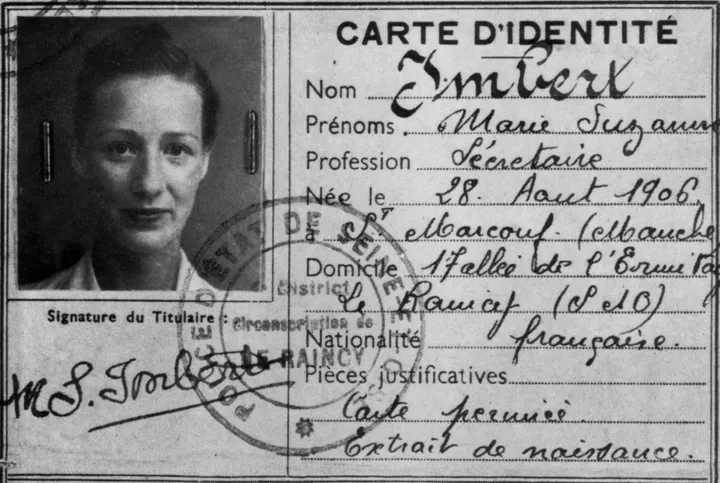 CARTE D'IDENTITÉ
Nom Imbert
Prénoms Marie Suzanne
Profession Sécretaire
Née le 28. Aout 1906.
à St Marcouf. (Manche
Domicile 17 allée de l'Ermitag
Le Raincy (S et O)
Nationalité française.
Pièces justificatives
Carte permice.
Extrait de naissance.
Signature du Titulaire :
M S. Imbert
POLICE D'ETAT DE SEINE ET O
District
Circonscription de
LE RAINCY